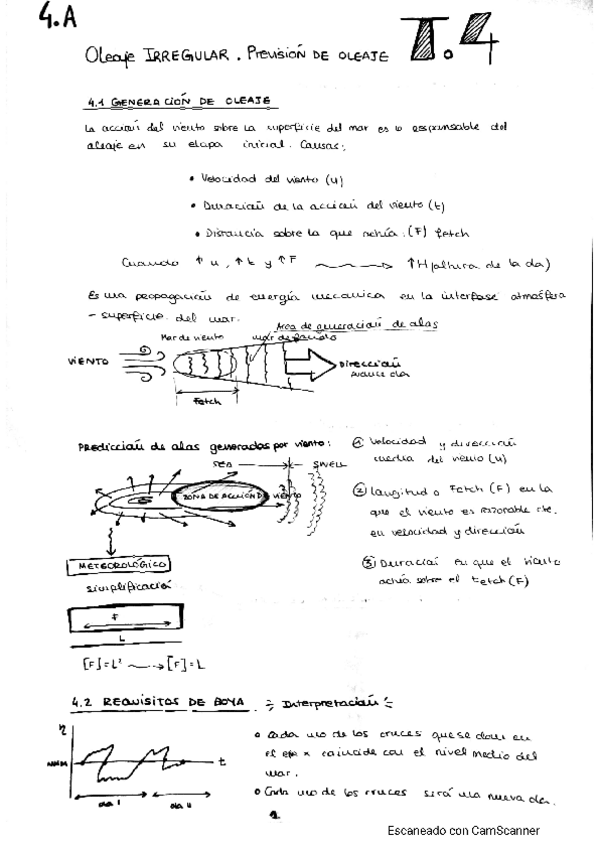 4.A
Oleaje IRREGULAR. PREVISIÓN DE OLEAJE
T.4
4.1 GENERACIÓN DE OLEAJE
La acción del viento sobre la superficie del mar es la responsable del
oleaje en su etapa inicial. Causas:
• Velocidad del viento (u)
• Duración de la acción del viento (t)
• Distancia sobre la que actúa: (F) fetch
Cuando ↑ u, ↑ t y ↑ F → ↑H (altura de la ola)
Es una propagación de energía mecánica en la interfase atmósfera
- superficie del mar.
Area de generación de olas
Mar de viento
mar de fondo
VIENTO
Dirección
avance ola
Fetch
Predicción de olas generadas por viento:
SEA
SWELL
ZONA DE ACCIÓN DE VIENTO
① Velocidad y dirección
media del viento (u)
② Longitud o Fetch (F) en la
que el viento es razonable cte.
en velocidad y dirección
③ Duración en que el viento
actúa sobre el fetch (F)
METEOROLÓGICO
simplificación
F
L
[F]=L² → [F]=L
4.2 REQUISITOS DE BOYA. Interpretación:
η
t
ola I
ola II
• Cada uno de los cruces que se dan en
el eje x coincide con el nivel medio del
mar.
• Cada uno de los cruces será una nueva ola.
1
Escaneado con CamScanner